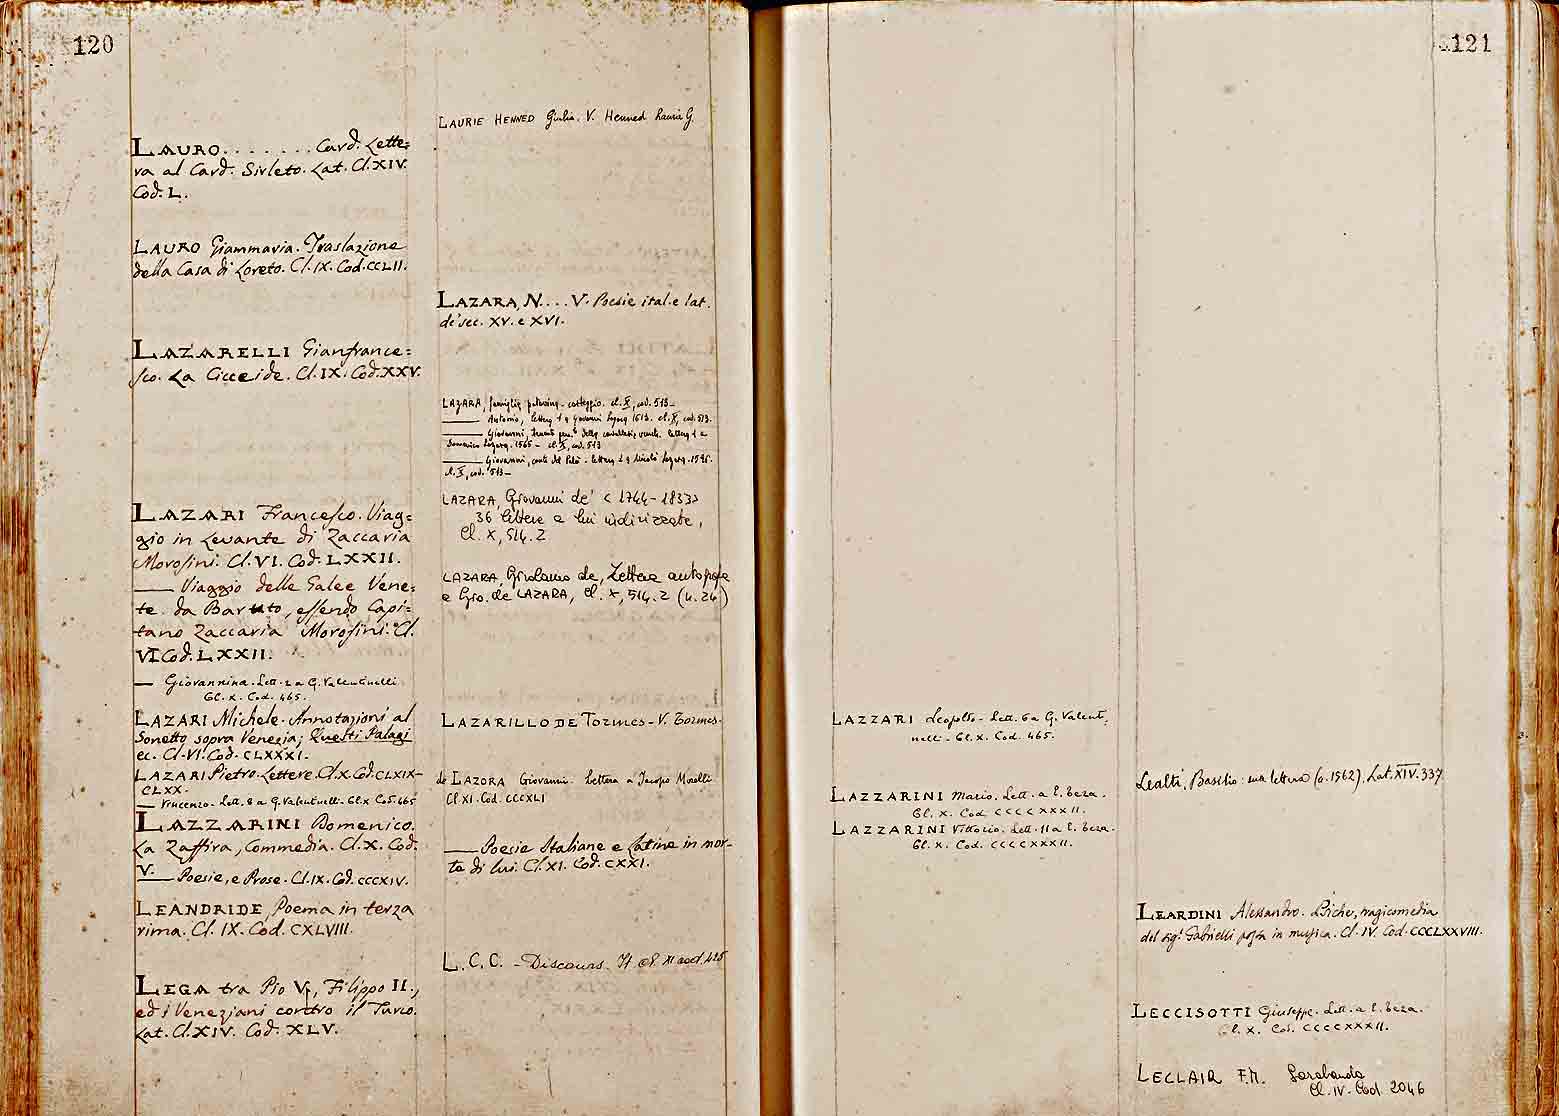 120
LAURO. . . . . . . Card. Lette=
ra al Card. Sirleto. Lat. Cl. XIV.
Cod. L.
LAURO Giammaria. Traslazione
della Casa di Loreto. Cl. IX. Cod. CCLII.
LAZARELLI Gianfrance=
sco. La Cicceide. Cl. IX. Cod. XXV.
LAZARI Francesco. Viag=
gio in Levante di Zaccaria
Morosini. Cl. VI. Cod. LXXII.
— Viaggio delle Galee Vene=
te da Baruto, essendo Capi=
tano Zaccaria Morosini. Cl.
VI Cod. LXXII.
— Giovannina. Lett. 2 a G. Valentinelli
Cl. X. Cod. 465.
LAZARI Michele. Annotazioni al
Sonetto sopra Venezia; Questi Palagi
ec. Cl. VI. Cod. CLXXXI.
LAZARI Pietro. Lettere. Cl. X. Cod. CLXIX-
CLXX.
— Vincenzo. Lett. 8 a G. Valentinelli. Cl. X Cod. 465
LAZZARINI Domenico.
La Zaffira, Commedia. Cl. X. Cod.
V.
— Poesie, e Prose. Cl. IX. Cod. CCCXIV.
LEANDRIDE, Poema in terza
rima. Cl. IX. Cod. CXLVIII.
LEGA tra Pio V., Filippo II.,
ed i Veneziani contro il Turco.
Lat. Cl. XIV. Cod. XLV.
LAURIE HENNED Giulia. V. Henned Lauria G.
LAZARA, N. . . . V. Poesie ital. e lat.
de' sec. XV. e XVI.
LAZARA, famiglia padovana - carteggio. cl. X, cod. 513 —
— Antonio, lettera 1 a Giovanni Lazara 1613. cl. X, cod. 513.
— Giovanni, della cavalleria veneta. lettera 1 a
Domenico Lazara. 1565 — cl. X, cod. 513
— Giovanni, conte del Palù - lettera 1 a Nicolò Lazara. 1595.
cl. X, cod. 513 —
LAZARA, Giovanni de' <1744-1833>
36 lettere a lui indirizzate,
Cl. X, 514. 2
LAZARA, Girolamo de, Lettera autografa
a Gio. de LAZARA, Cl. X, 514. 2 (n. 24)
LAZARILLO DE Tormes - V. Tormes.
de LAZORA Giovanni. Lettera a Jacopo Morelli
Cl XI. Cod. CCCXLI
— Poesie Italiane e Latine in mor-
te di lui. Cl. XI. Cod. CXXI.
L. C. C. - Discours. It. cl. XI cod. 425
121
LAZZARI Leopoldo - Lett. 6 a G. Valenti-
nelli - Cl. X. Cod. 465.
LAZZARINI Mario. Lett. a E. Teza.
Cl. X. Cod. CCCCXXXII.
LAZZARINI Vittorio. Lett. 11 a E. Teza.
Cl. X. Cod. CCCCXXXII.
Lealti, Basilio: sua lettera (a. 1562). Lat. XIV. 337.
LEARDINI Alessandro. Psiche, tragicomedia
del sigr. Gabrielli posta in musica. Cl. IV. Cod. CCCLXXVIII.
LECCISOTTI Giuseppe. Lett. a E. Teza.
Cl. X. Cod. CCCCXXXII.
LECLAIR F. M. Sarabanda
Cl. IV. Cod. 2046